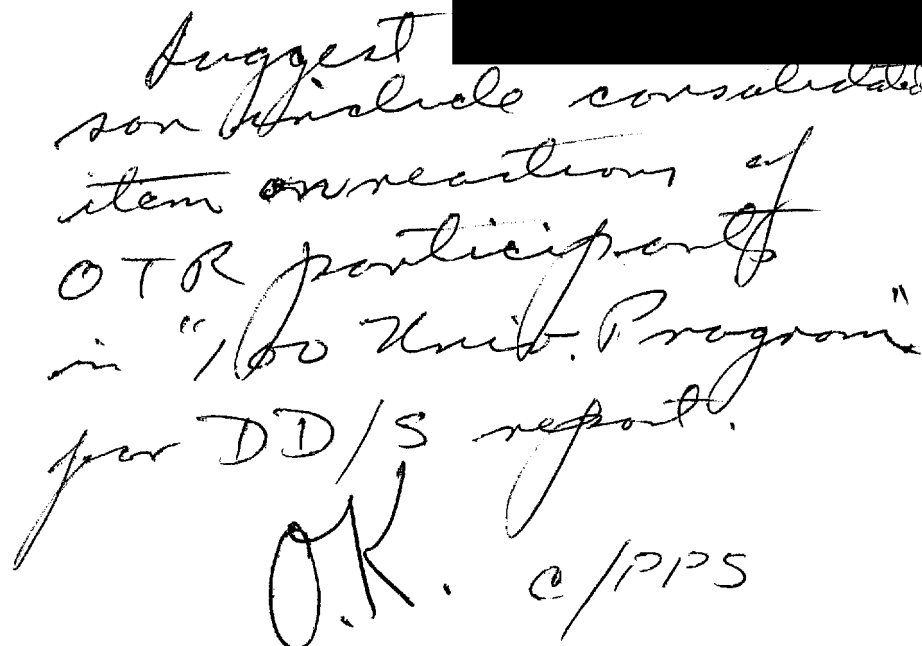 Suggest
son include consolidated
item on reactions of
OTR participants
in "100 Univ. Program"
for DD/S report.
O.K. C/PPS